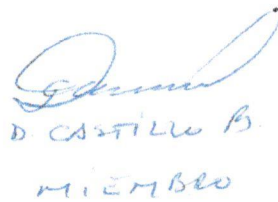 D. CASTILLO B.
MIEMBRO